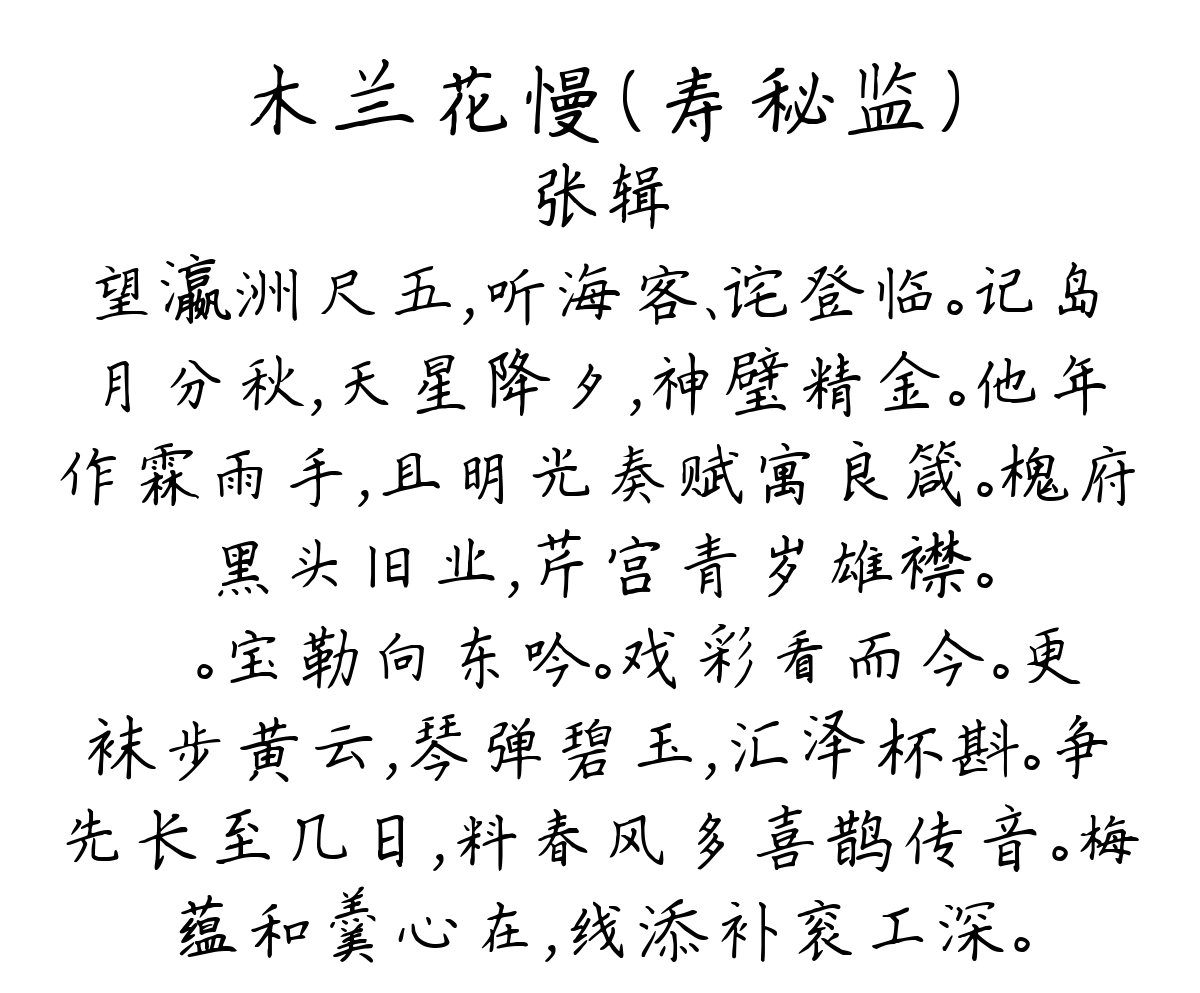 木兰花慢(寿秘监)
张辑
望瀛洲尺五,听海客、诧登临。记岛
月分秋,天星降夕,神璧精金。他年
作霖雨手,且明光奏赋寓良箴。槐府
黑头旧业,芹宫青岁雄襟。
。宝勒向东吟。戏彩看而今。更
袜步黄云,琴弹碧玉,汇泽杯斟。争
先长至几日,料春风多喜鹊传音。梅
蕴和羹心在,线添补衮工深。